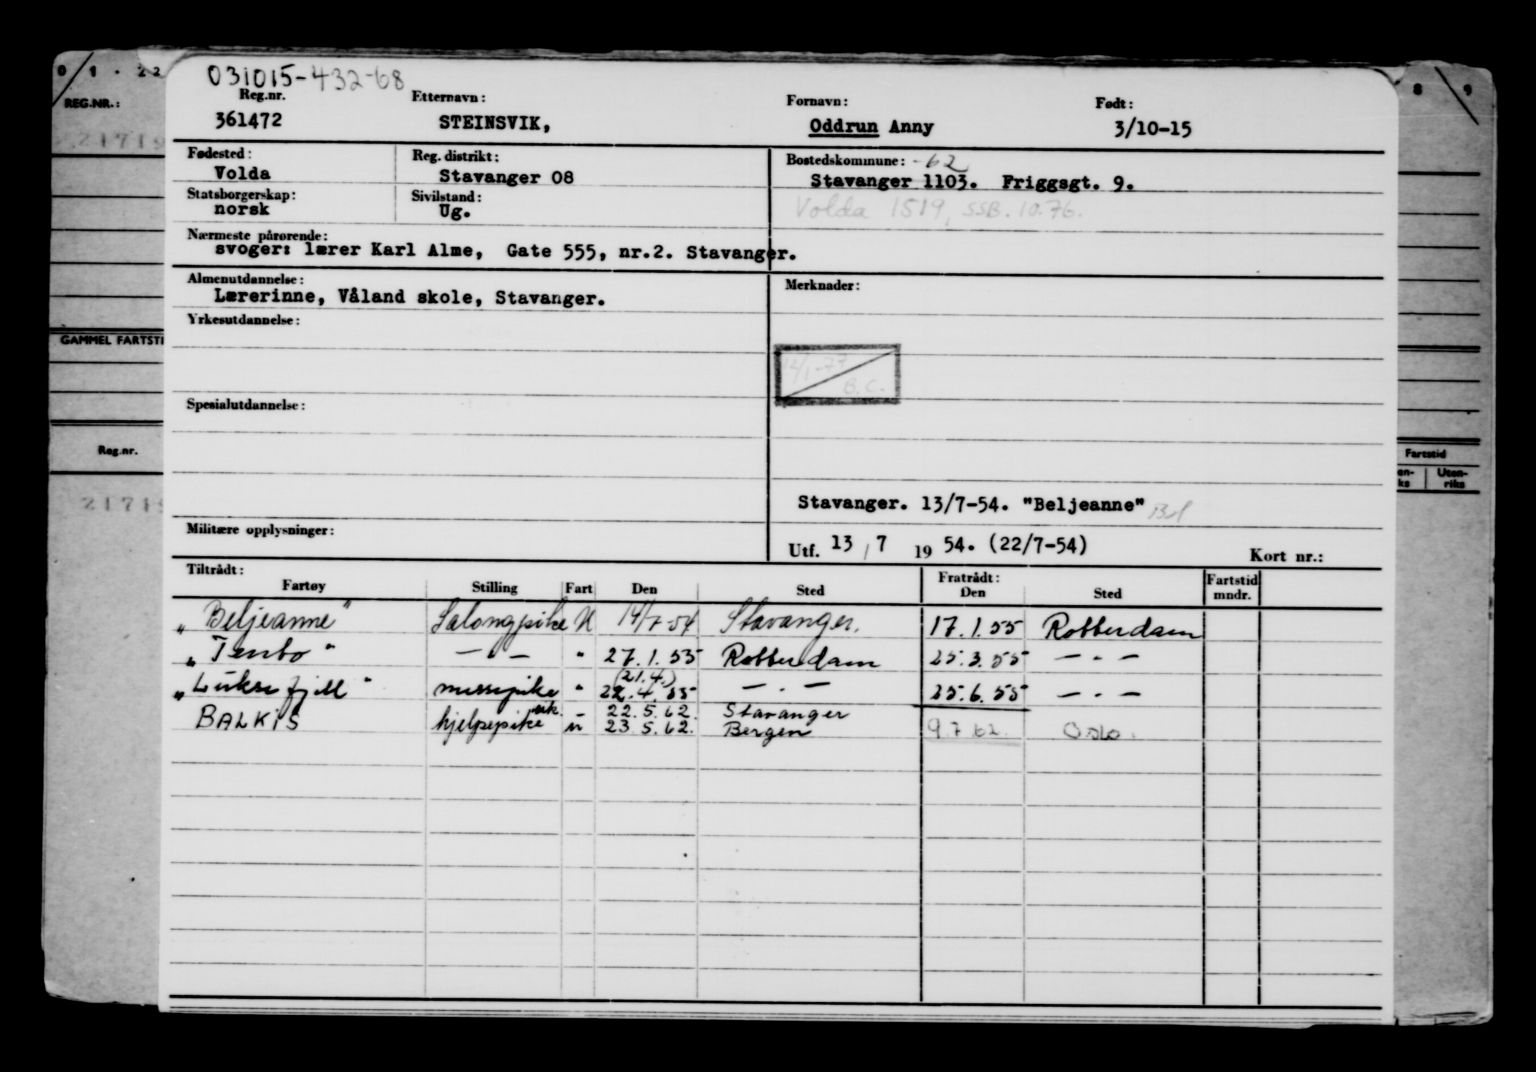 0 1 . 22
8 9
031015-432-68
REG.NR.:
Reg.nr. Etternavn: Fornavn: Født:
361472 STEINSVIK, Oddrun Anny 3/10-15
21719
Fødested: Reg. distrikt: Bostedskommune: -62
Volda Stavanger 08 Stavanger 1103. Friggsgt. 9.
Statsborgerskap: Sivilstand:
norsk Ug. Volda 1519, SSB. 10.76.
Nærmeste pårørende:
svoger: lærer Karl Alme, Gate 555, nr.2. Stavanger.
Almenutdannelse: Merknader:
Lærerinne, Våland skole, Stavanger.
Yrkesutdannelse:
GAMMEL FARTSTI
12/1-79
B.C.
Spesialutdannelse:
Reg.nr.
Fartstid
Uten-
riks
2171
Stavanger. 13/7-54. "Beljeanne" Bel
Militære opplysninger:
Utf. 13 / 7 19 54. (22/7-54) Kort nr.:
Tiltrådt: Fratrådt: Fartstid
Fartøy Stilling Fart Den Sted Den Sted mndr.
"Beljeanne" Salongpike U 14/7-54 Stavanger. 17.1.55 Rotterdam
" - " 27.1.55 Rotterdam 25.3.55 - " -
(21.4.)
messepike " 22.4.55 - " - 25.6.55 - " -
22.5.62. Stavanger
BALKIS hjelpepike u 23.5.62. Bergen 9.7.62. Oslo.